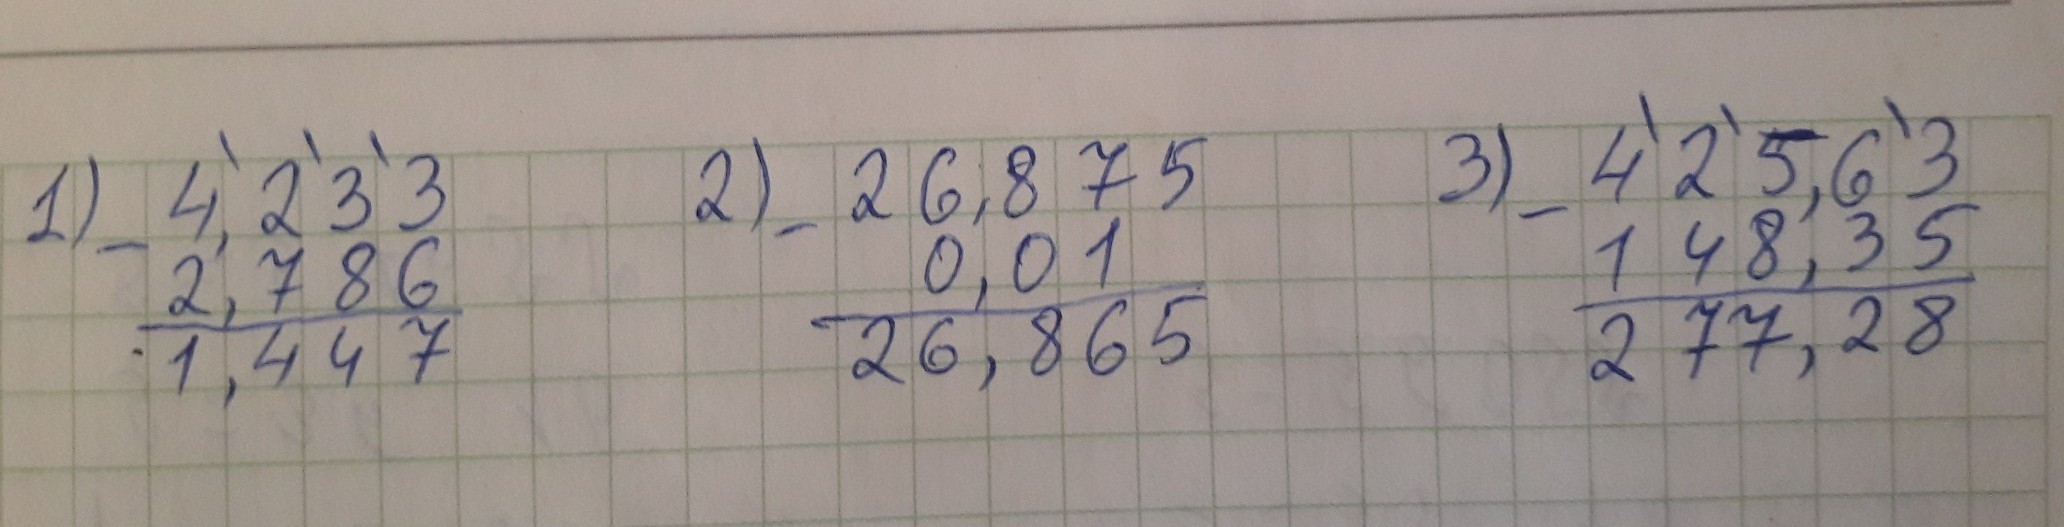 1) - 4,233
2,786
1,447
2) - 26,875
0,01
26,865
3) - 425,63
148,35
277,28